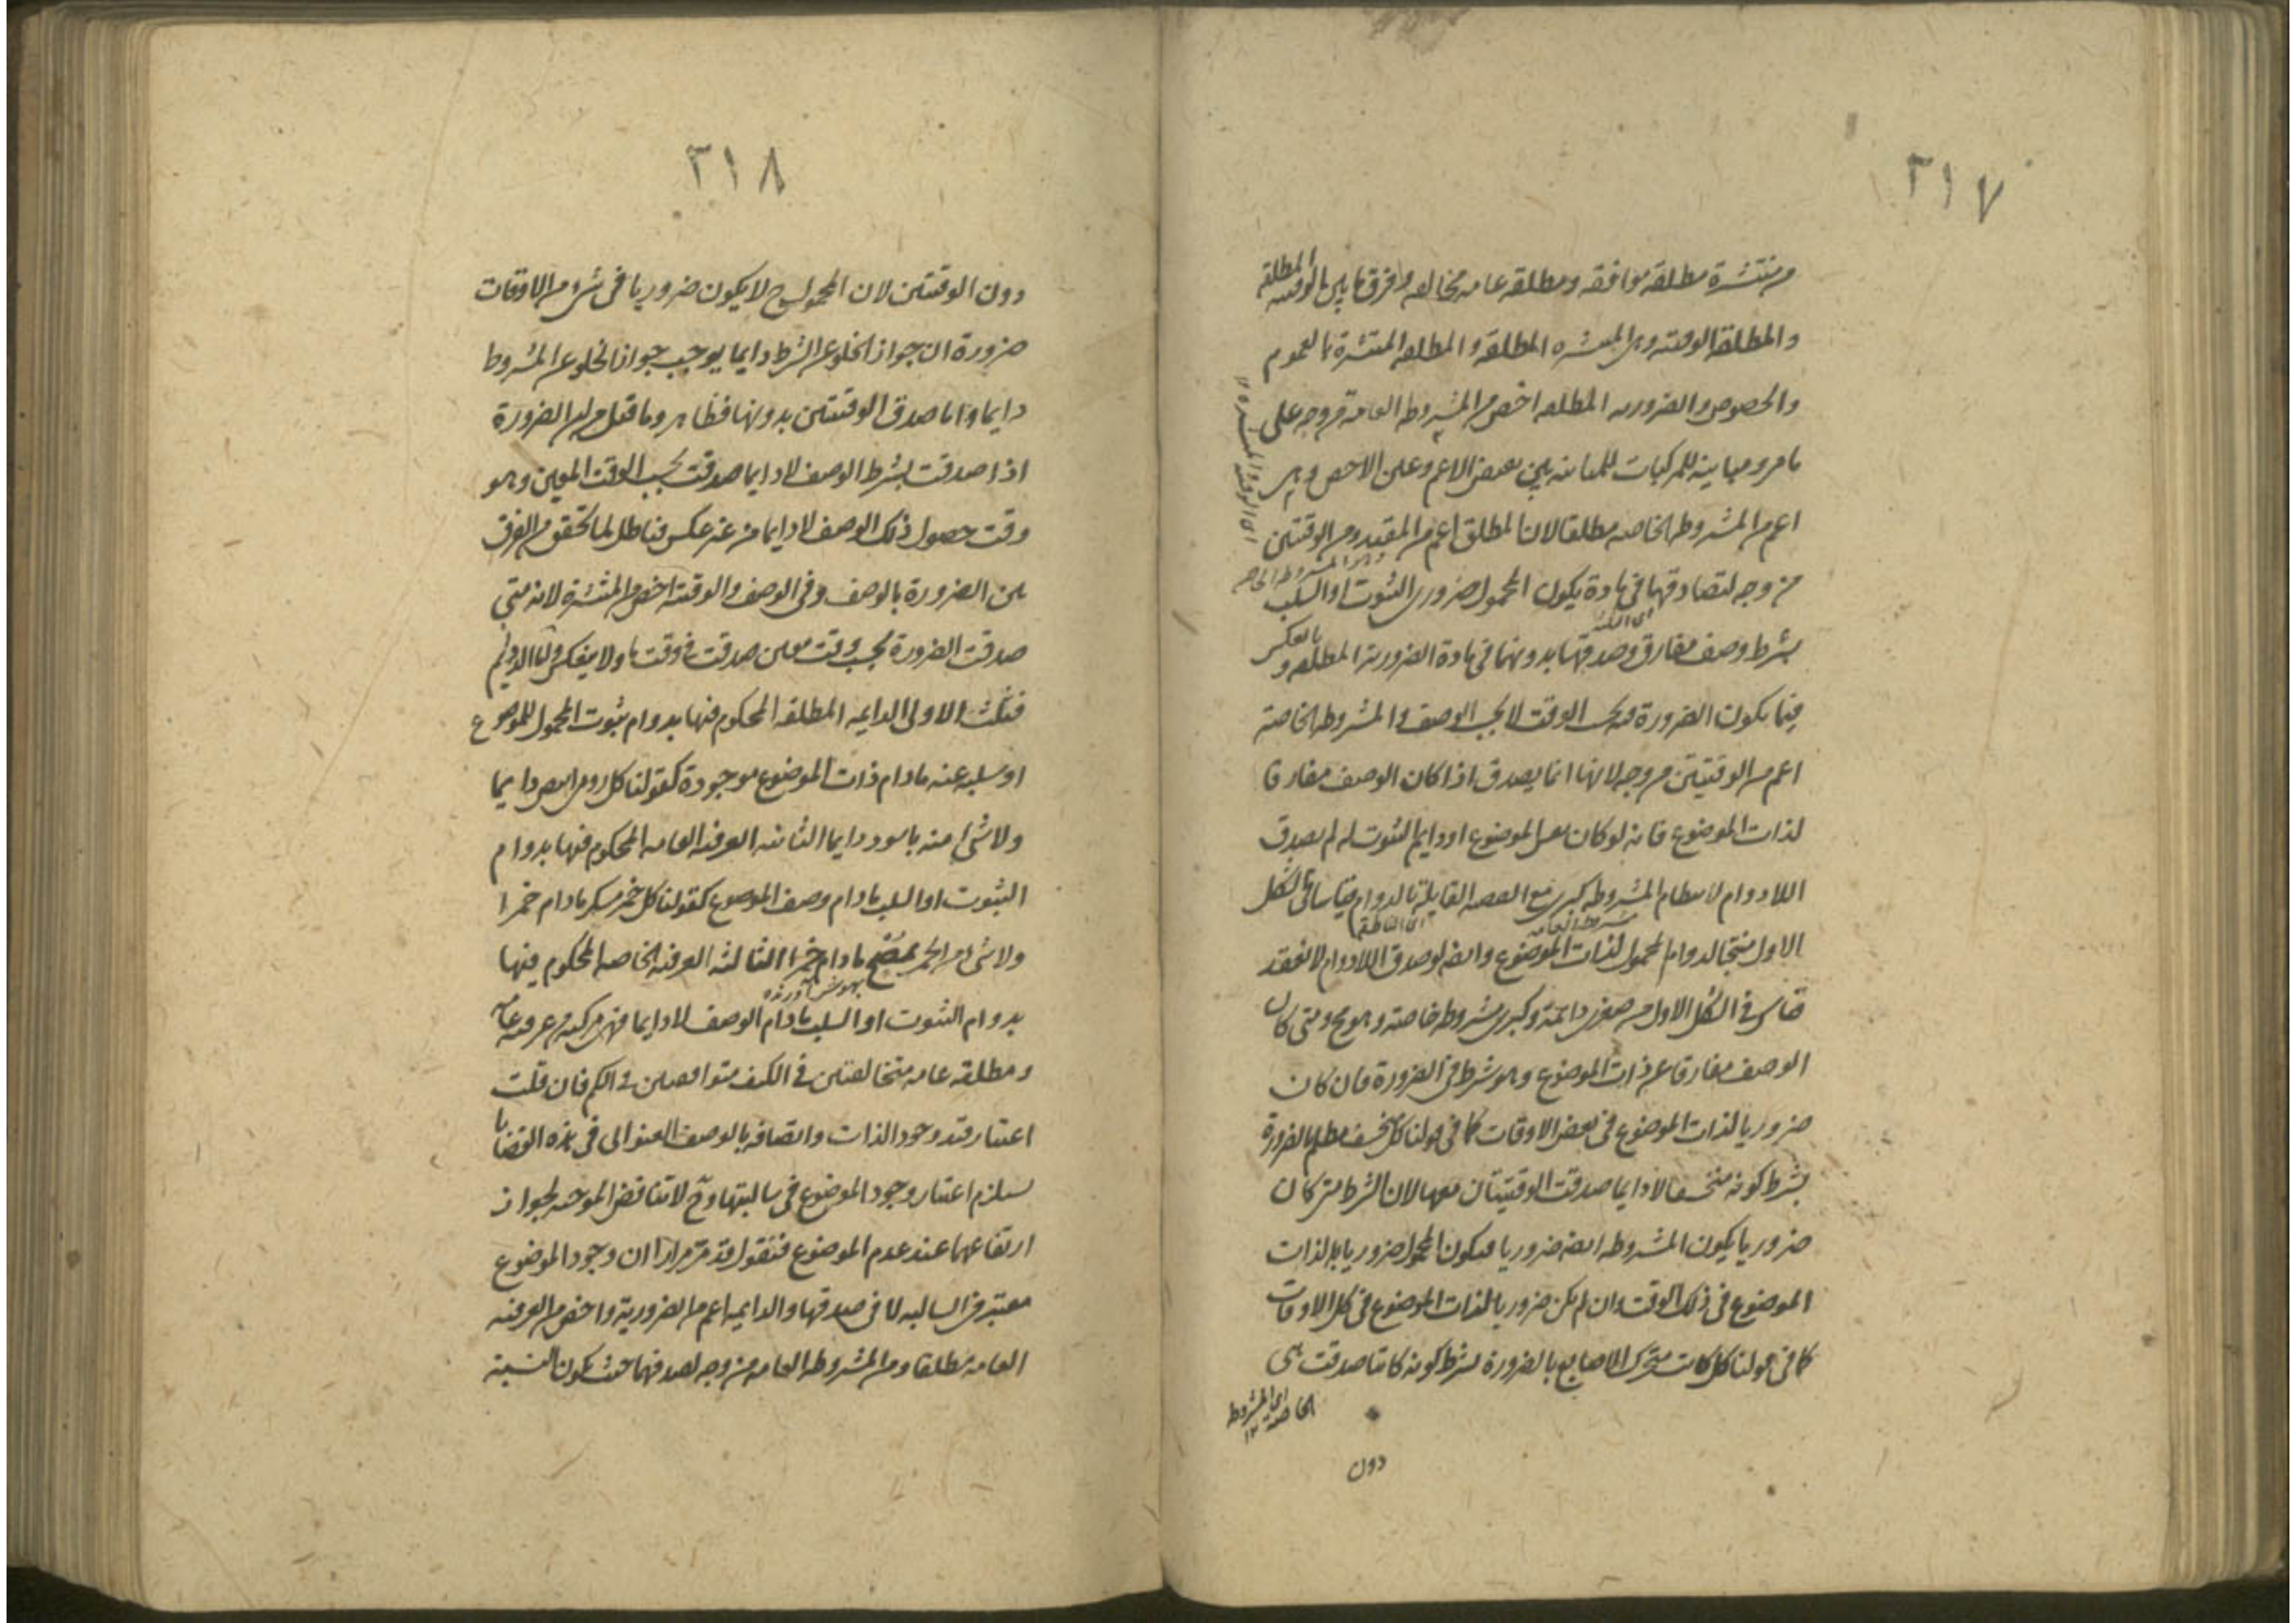 ٣١٧
ومنتشرة مطلقة موافقه ومطلقه عامه مخالفه وفرق ما بين الوقتيه المطلقه
والمطلقة الوقتيه وبين المنتشره المطلقه والمطلقه المنتشرة بالعموم
والخصوص والضروريه المطلقه اخص من المشروطه العامه من وجه على
ما مر ومباينه للمركبات للمباينه بين نقيض الاعم وعين الاخص وهى
اعم من المشروطه الخاصه مطلقا لان المطلق اعم من المقيد ومن الوقتيتين
من وجه لتصادقهما فى مادة يكون المحمول ضرورى الثبوت او السلب
بشرط وصف مفارق وصدقها بدونهما فى مادة الضرورية المطلقه وبالعكس
فيما يكون الضرورة بحسب الوقت لا بحسب الوصف والمشروطه الخاصة
اعم من الوقتيتين من وجه لانها انما يصدق اذا كان الوصف مفارقا
لذات الموضوع فانه لو كان نفس الموضوع او دايم الثبوت له لم يصدق
اللادوام لانتظام المشروطه كبرى مع القضيه القايلة بالدوام قياسا على الشكل
الاول منتجا لدوام المحمول لذات الموضوع وايضه لو صدق اللادوام لانعقد
قياس فى الشكل الاول من صغرى دايمة وكبرى مشروطه خاصة وهو مح ومتى كان
الوصف مفارقا عن ذات الموضوع وهو شرط فى الضرورة فان كان
ضروريا لذات الموضوع فى بعض الاوقات كما فى قولنا كل منخسف مظلم بالضرورة
بشرط كونه منخسفا لا دايما صدقت الوقتيتان معها لان الشرط متى كان
ضروريا يكون المشروطه ايضه ضروريا فيكون المحمول ضروريا لذات
الموضوع فى ذلك الوقت وان لم يكن ضروريا لذات الموضوع فى كل الاوقات
كما فى قولنا كل كاتب متحرك الاصابع بالضرورة بشرط كونه كاتبا صدقت هى
اى المشروطه
الخاصة ١٢
دون
٣١٨
دون الوقتيتين لان المحمول ح لا يكون ضروريا فى شىء من الاوقات
ضرورة ان جواز الخلو عن الشرط دايما يوجب جواز الخلو عن المشروط
دايما واما صدق الوقتيتين بدونها فظاهر وما قيل من ان الضرورة
اذا صدقت بشرط الوصف لا دايما صدقت بحسب الوقت المعين وهو
وقت حصول ذلك الوصف لا دايما من غير عكس فباطل لما تحقق من الفرق
بين الضرورة بالوصف وفى الوصف والوقتيه اخص من المنتشرة لانه متى
صدقت الضرورة بحسب وقت معين صدقت فى وقت ما ولا ينعكس واما الدوايم
فثلث الاولى الدايمه المطلقه المحكوم فيها بدوام ثبوت المحمول للموضوع
او سلبه عنه مادام ذات الموضوع موجودة كقولنا كل رومى ابيض دايما
ولا شىء منه باسود دايما الثانيه العرفيه العامه المحكوم فيها بدوام
الثبوت او السلب مادام وصف الموضوع كقولنا كل خمر مسكر مادام خمرا
ولا شىء من الخمر بمصح مادام خمرا الثالثه العرفيه الخاصه المحكوم فيها
بهوش آورنده
بدوام الثبوت او السلب مادام الوصف لا دايما فهى مركبه من عرفيه عامه
ومطلقه عامه متخالفتين فى الكيف متوافقتين فى الكم فان قلت
اعتبار قيد وجود الذات واتصافه بالوصف العنوانى فى هذه القضايا
يستلزم اعتبار وجود الموضوع فى سالبتها وح لا تناقض الموجبه لجواز
ارتفاعهما عند عدم الموضوع فنقول قد مر مرارا ان وجود الموضوع
معتبر فى السالبه لا فى صدقها والدايمه اعم من الضرورية واخص من العرفيه
العامه مطلقا ومن المشروطه العامه من وجه لصدقهما حيث يكون النسبة